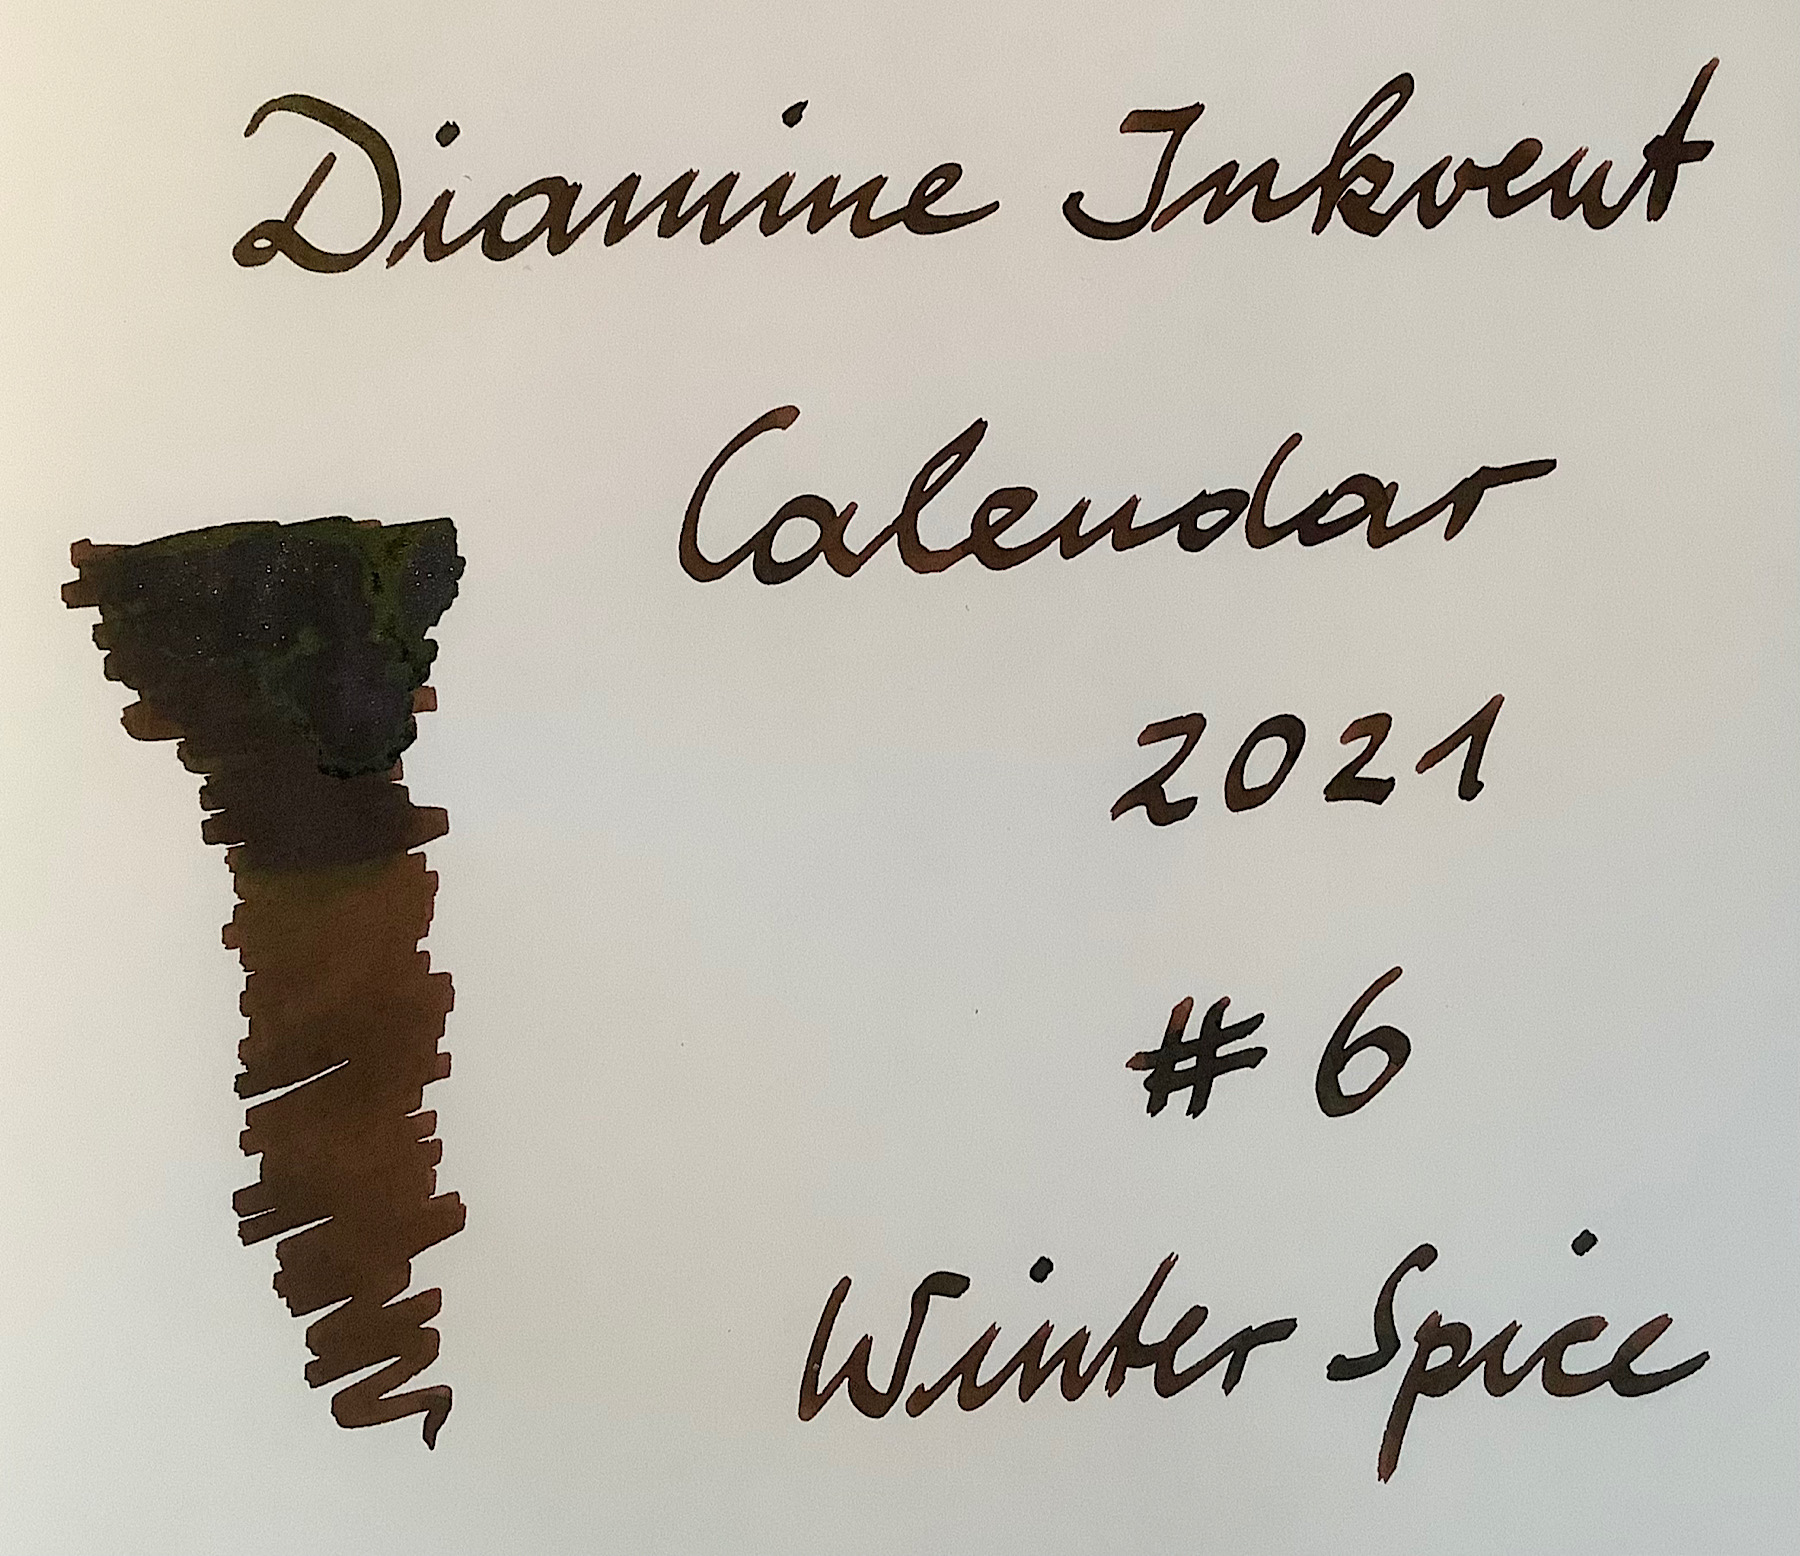 Diamine Inkvent
Calendar
2021
# 6
Winter Spice